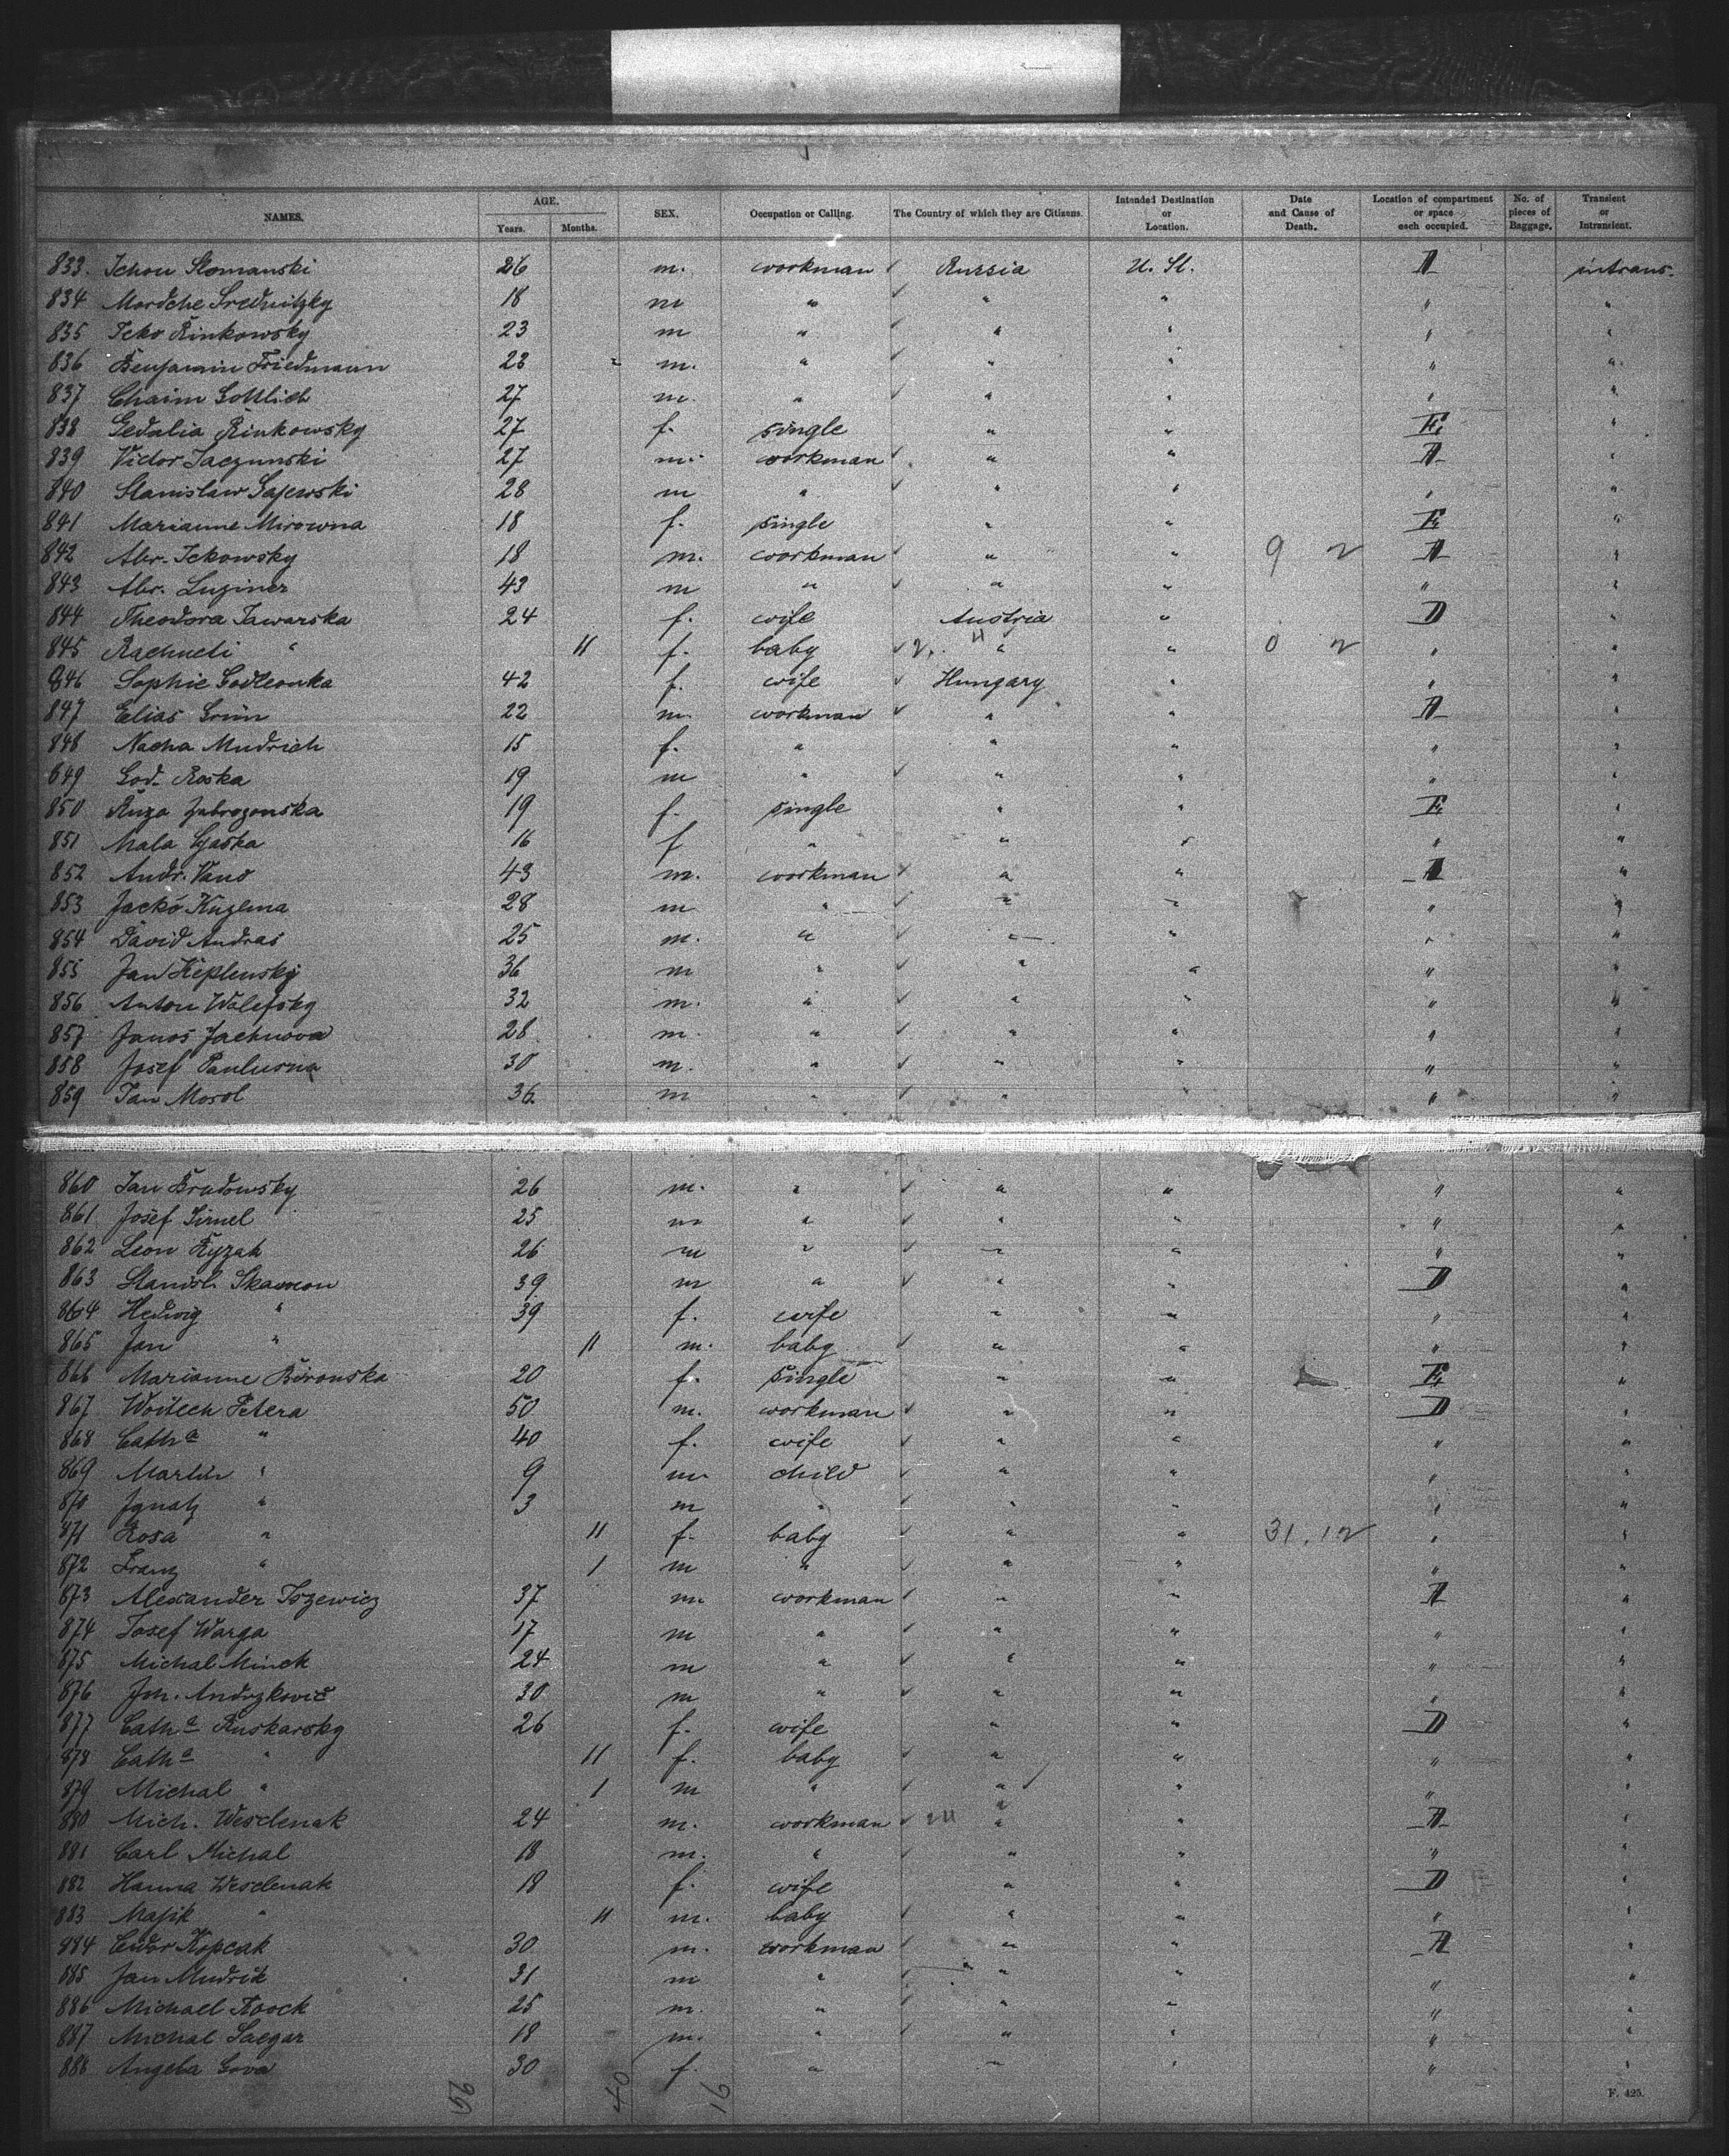 NAMES. AGE. Years. Months. SEX. Occupation or Calling. The Country of which they are Citizens. Intended Destination or Location. Date and Cause of Death. Location of compartment or space each occupied. No. of pieces of Baggage. Transient or Intransient.
833. Schon Slomanski 26 m. workman ✓ Russia U. St. A intrans.
834 Mordche Srednitzky 18 m " ✓ " " " "
835 Icko Rinkowsky 23 m " ✓ " " " "
836 Benjamin Friedmann 28 m. " ✓ " " " "
837 Chaim Gottlieb 27 m. " ✓ " " " "
838 Gedalia Rinkowsky 27 f. single " " E "
839 Victor Jaczunski 27 m. workman ✓ " " A "
840 Stanislaw Gajewski 28 m " ✓ " " " "
841 Marianne Mirowna 18 f. single " " E "
842 Abr. Ickowsky 18 m. workman ✓ " " 9 2 A "
843 Abr. Luginer 43 m " ✓ " " " "
844 Theodora Tawarska 24 f. wife Austria " D "
845 " 11 f. baby ✓ " " 0 2 " "
846 Sophie 42 f. wife ✓ Hungary " " "
847 Elias Grün 22 m. workman ✓ " " A "
848 Nacha Mudrich 15 f. " " " " "
849 God. Roska 19 m " ✓ " " " "
850 Ruza 19 f. single " " E "
851 Mala 16 f " " " " "
852 Andr. Vano 43 m. workman ✓ " " A "
853 Jackó Kuzlma 28 m " ✓ " " " "
854 David Andras 25 m. " ✓ " " " "
855 Jan Keplensky 36 m " ✓ " " " "
856 Anton Walefsky 32 m. " ✓ " " " "
857 Janos Jachnova 28 m. " ✓ " " " "
858 Josef Paulusna 30 m. " ✓ " " " "
859 Jan Morol 36 m " ✓ " " " "
860 Jan Brudowsky 26 m. " ✓ " " " "
861 Josef Simel 25 m " ✓ " " " "
862 Leon Ryzak 26 m " ✓ " " " "
863 Stanisl. Skamon 39 m " ✓ " " D "
864 Hedwig " 39 f. wife " " " "
865 Jan " 11 m. baby ✓ " " " "
866 Marianne Boronska 20 f. single " " E "
867 Woitech Petera 50 m. workman ✓ " " D "
868 Cath.a " 40 f. wife ✓ " " " "
869 Martin " 9 m. child ✓ " " " "
870 Ignatz " 3 m " ✓ " " " "
871 Rosa " 11 f. baby ✓ " " 31.12 " "
872 Franz " 1 m " ✓ " " " "
873 Alexander Iszewicz 37 m. workman ✓ " " A "
874 Josef Warga 17 m " ✓ " " " "
875 Michal Minck 24 m " ✓ " " " "
876 Joh. Andrzkovič 30 m " ✓ " " " "
877 Cath.a Ruskarsky 26 f. wife " " D "
878 Cath.a " 11 f. baby ✓ " " " "
879 Michal " 1 m " ✓ " " " "
880 Mich. Wesclenak 24 m. workman ✓ " " A "
881 Carl Michal 18 m. " ✓ " " " "
882 Hanna Wesclenak 18 f. wife " " D "
883 Majik " 11 m. baby ✓ " " " "
884 Kopcak 30 m. workman ✓ " " A "
885 Jan Mudrik 31 m " ✓ " " " "
886 Michael Koock 25 m. " ✓ " " " "
887 Michal Saegar 18 m. " ✓ " " " "
888 Angela Gova 30 f. " " " " "
F. 425.